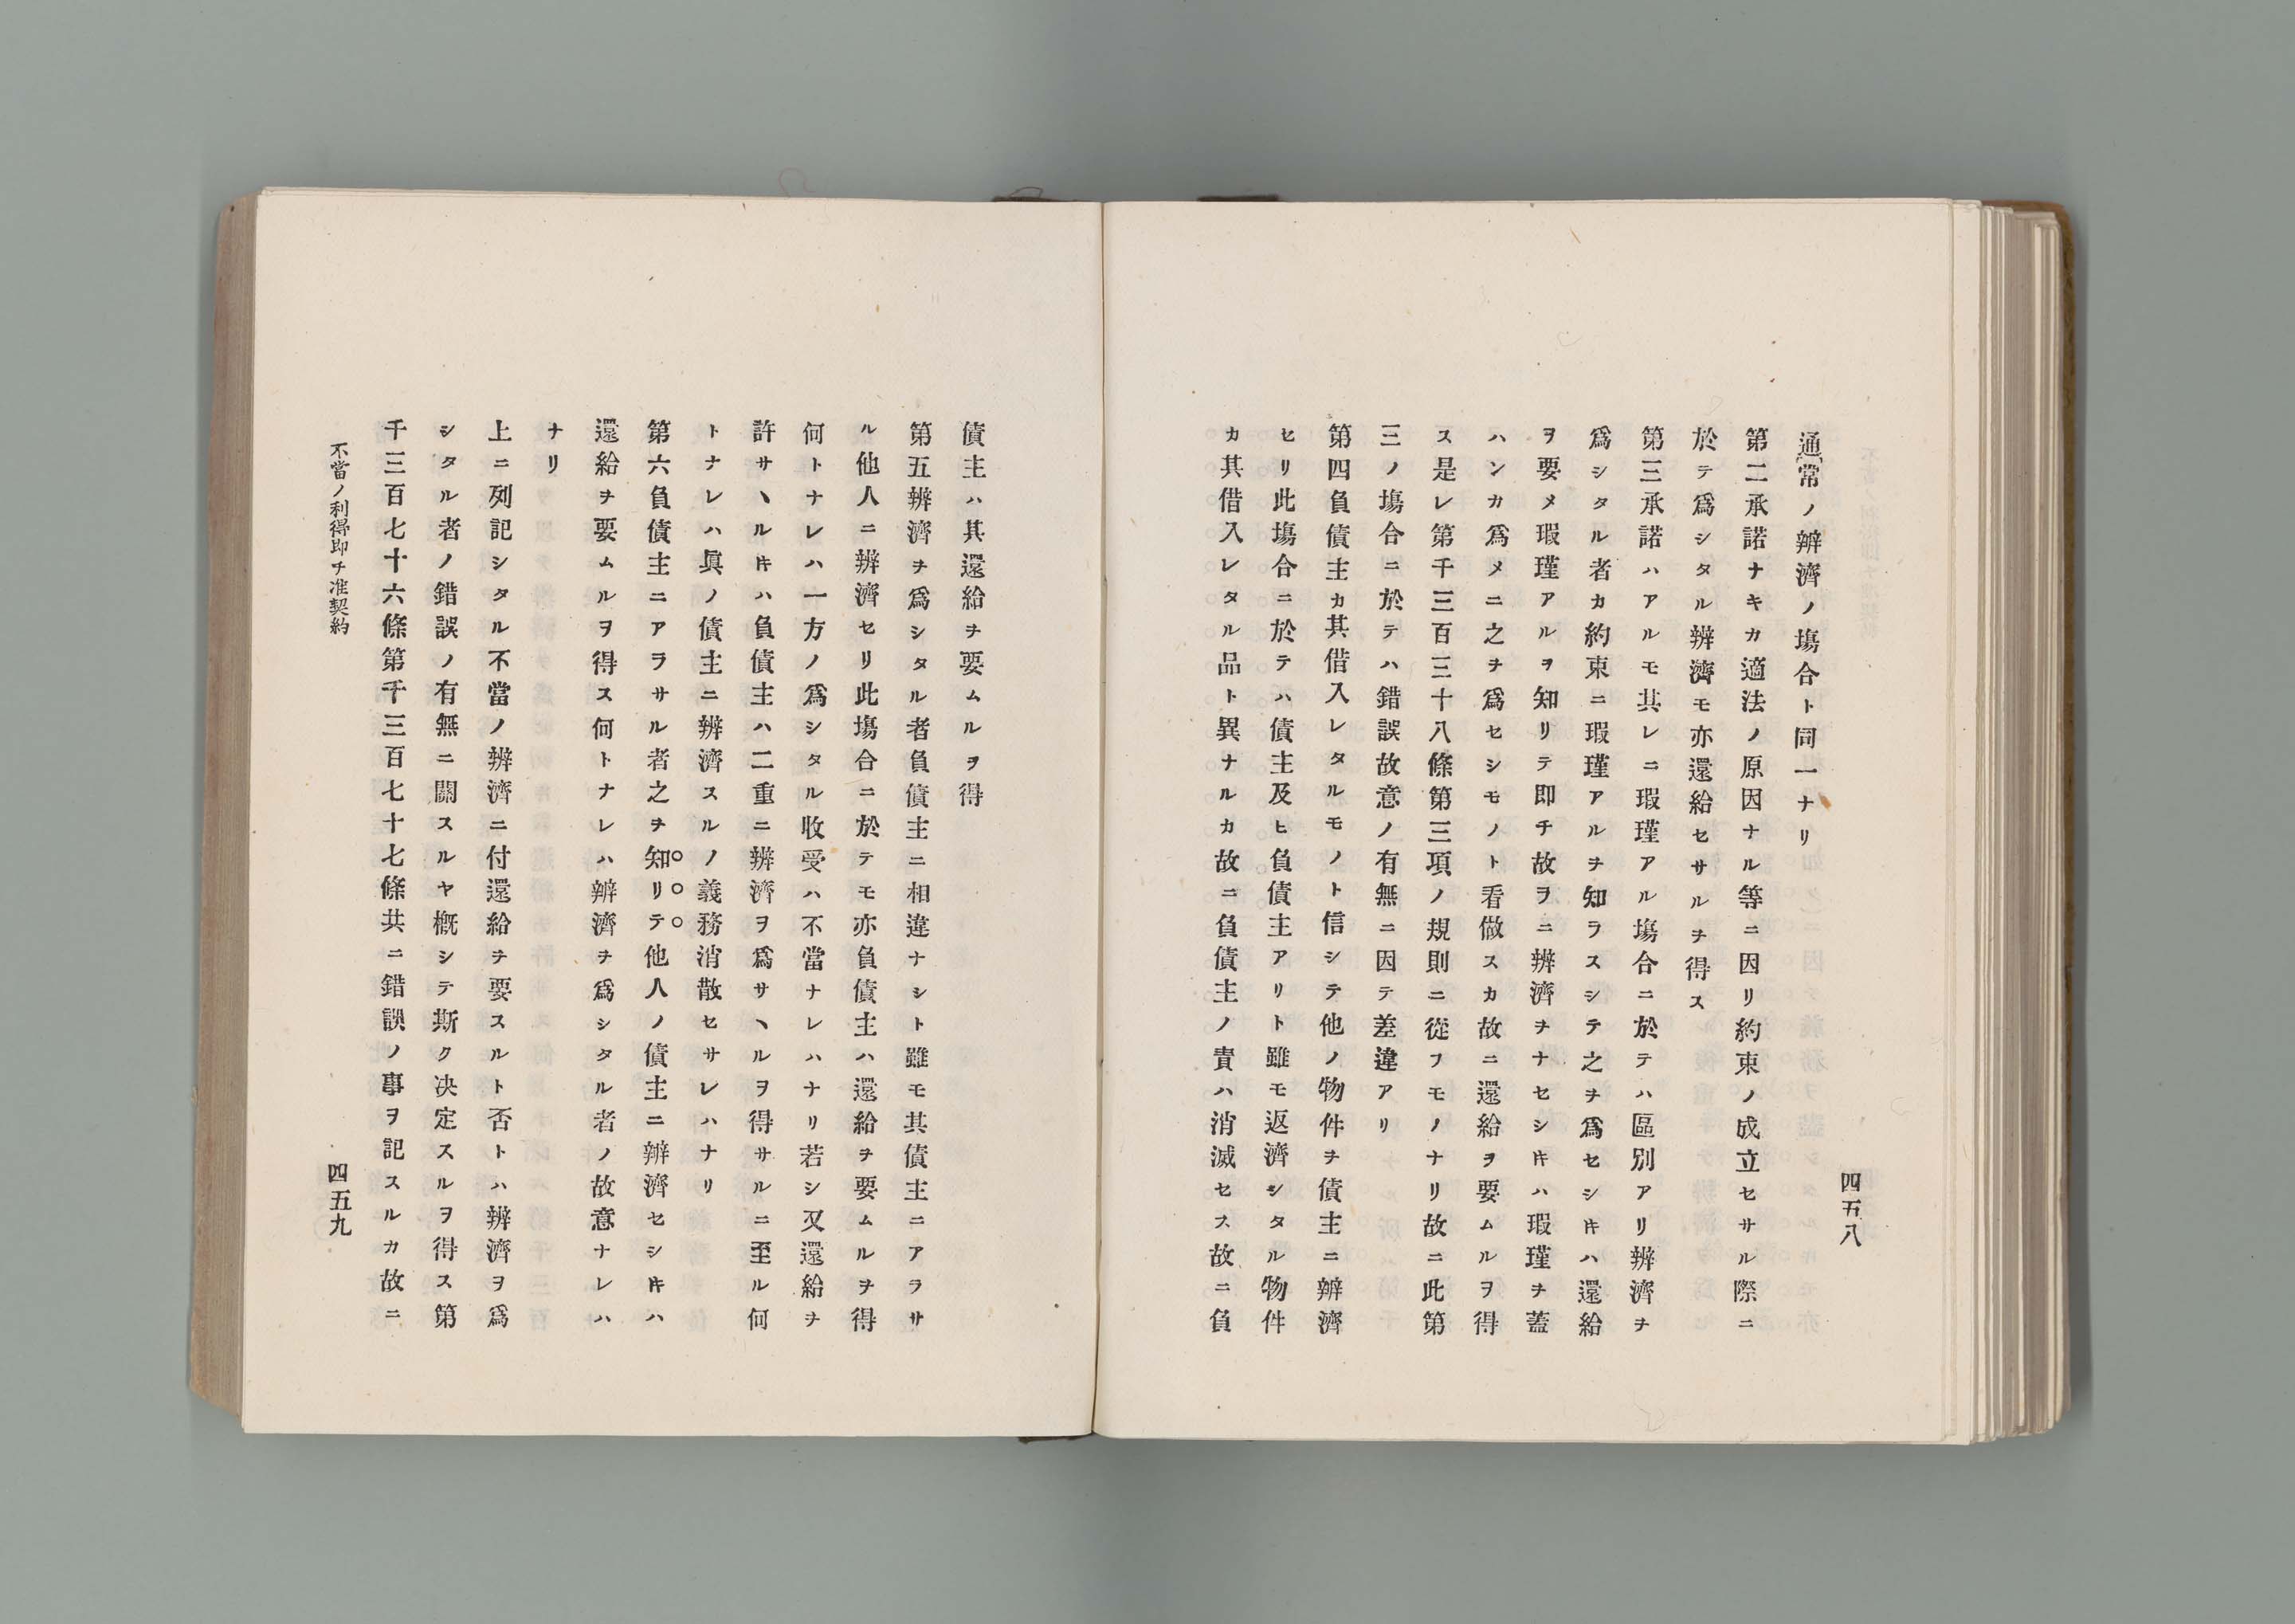 四五八
通常ノ辨濟ノ塲合ト同一ナリ
第二承諾ナキカ適法ノ原因ナル等ニ因リ約束ノ成立セサル際ニ
於テ爲シタル辨濟モ亦還給セサルヲ得ス
第三承諾ハアルモ其レニ瑕瑾アル塲合ニ於テハ區別アリ辨濟ヲ
爲シタル者カ約束ニ瑕瑾アルヲ知ラスシテ之ヲ爲セシキハ還給
ヲ要メ瑕瑾アルヲ知リテ即チ故ヲニ辨濟ヲナセシキハ瑕瑾ヲ蓋
ハンカ爲メニ之ヲ爲セシモノト看做スカ故ニ還給ヲ要ムルヲ得
ス是レ第千三百三十八條第三項ノ規則ニ從フモノナリ故ニ此第
三ノ塲合ニ於テハ錯誤故意ノ有無ニ因テ差違アリ
第四負債主カ其借入レタルモノト信シテ他ノ物件ヲ債主ニ辨濟
セリ此塲合ニ於テハ債主及ヒ負債主アリト雖モ返濟シタル物件
カ其借入レタル品ト異ナルカ故ニ負債主ノ責ハ消滅セス故ニ負
債主ハ其還給ヲ要ムルヲ得
第五辨濟ヲ爲シタル者負債主ニ相違ナシト雖モ其債主ニアラサ
ル他人ニ辨濟セリ此塲合ニ於テモ亦負債主ハ還給ヲ要ムルヲ得
何トナレハ一方ノ爲シタル收受ハ不當ナレハナリ若シ又還給ヲ
許サヽルキハ負債主ハ二重ニ辨濟ヲ爲サヽルヲ得サルニ至ル何
トナレハ眞ノ債主ニ辨濟スルノ義務消散セサレハナリ
第六負債主ニアラサル者之ヲ知リテ他人ノ債主ニ辨濟セシキハ
還給ヲ要ムルヲ得ス何トナレハ辨濟ヲ爲シタル者ノ故意ナレハ
ナリ
上ニ列記シタル不當ノ辨濟ニ付還給ヲ要スルト否トハ辨濟ヲ爲
シタル者ノ錯誤ノ有無ニ關スルヤ槪シテ斯ク决定スルヲ得ス第
千三百七十六條第千三百七十七條共ニ錯誤ノ事ヲ記スルカ故ニ
不當ノ利得即チ准契約
四五九